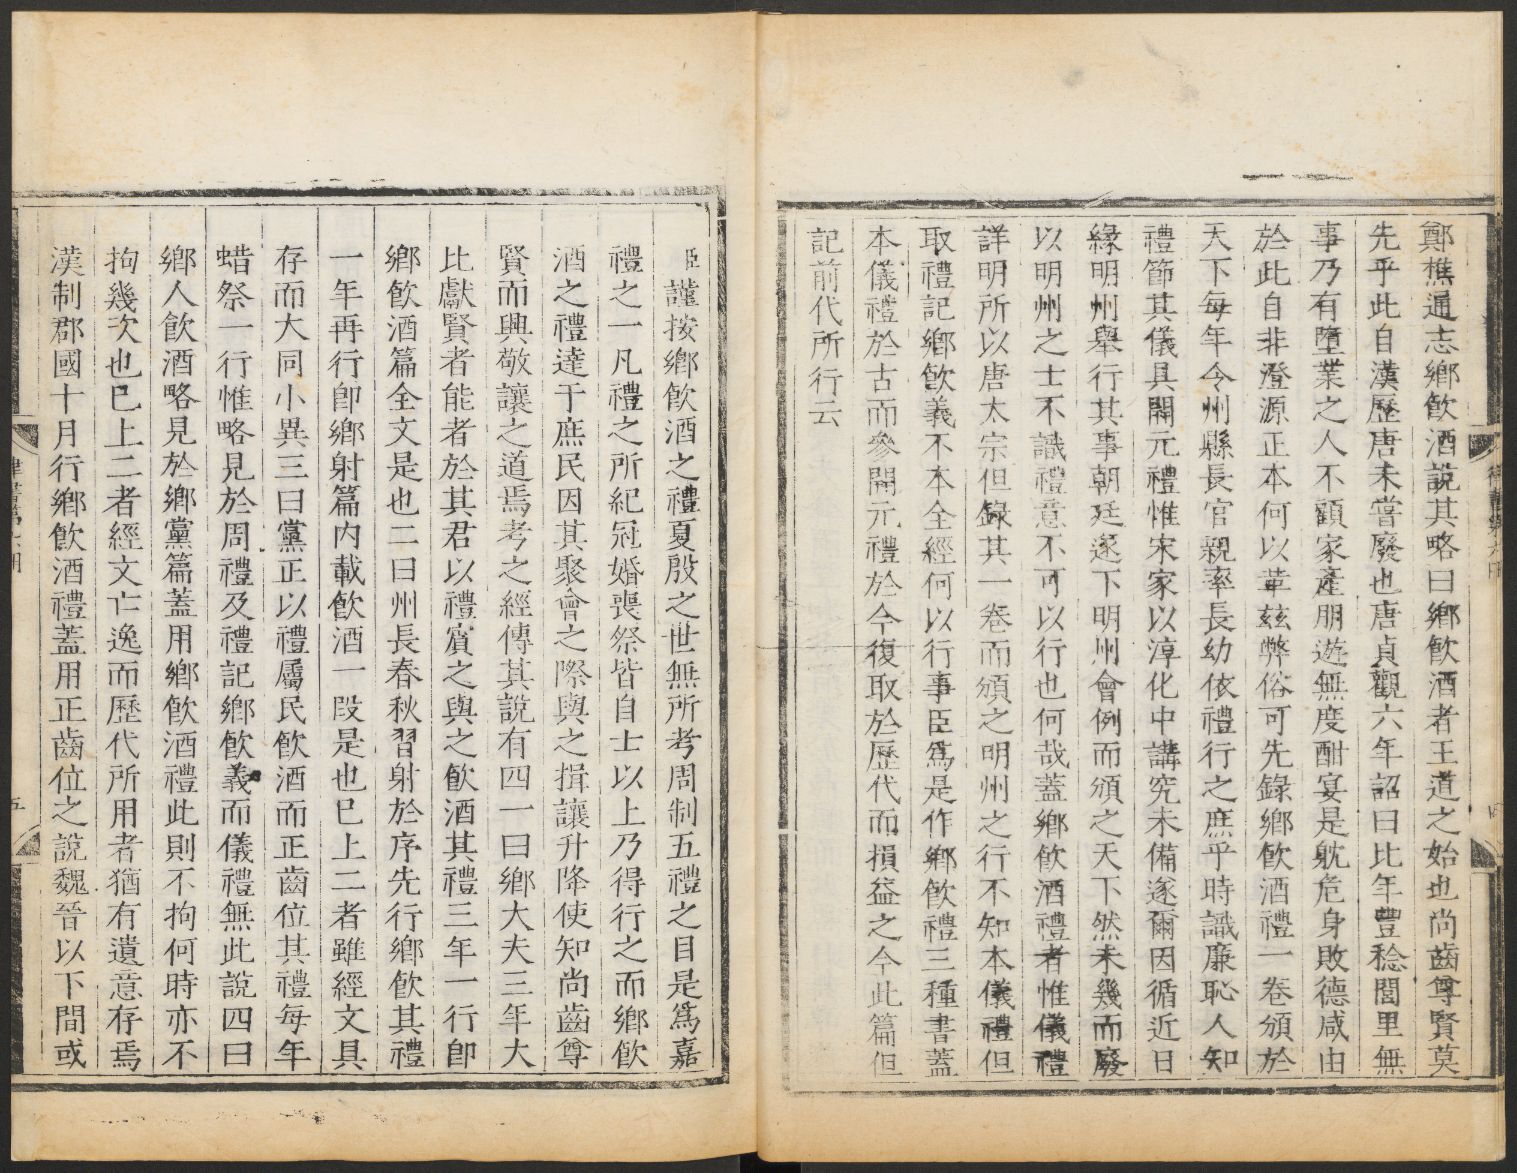 鄭樵通志鄉飮酒說其略曰鄉飮酒者王道之始也尚齒尊賢莫
先乎此自漢歷唐未嘗廢也唐貞觀六年詔曰比年豐稔閭里無
事乃有墮業之人不顧家產朋遊無度酣宴是躭危身敗德咸由
於此自非澄源正本何以革兹弊俗可先錄鄉飮酒禮一卷頒於
天下每年令州縣長官親率長幼依禮行之庶乎時識廉恥人知
禮節其儀具開元禮惟宋家以淳化中講究未備遂爾因循近日
緣明州舉行其事朝廷遂下明州會例而頒之天下然未幾而廢
以明州之士不識禮意不可以行也何哉蓋鄉飮酒禮者惟儀禮
詳明所以唐太宗但錄其一卷而頒之明州之行不知本儀禮但
取禮記鄉飮義不本全經何以行事臣爲是作鄉飮禮三種書蓋
本儀禮於古而參開元禮於今復取於歷代而損益之今此篇但
記前代所行云
臣謹按鄉飮酒之禮夏殷之世無所考周制五禮之目是爲嘉
禮之一凡禮之所紀冠婚喪祭皆自士以上乃得行之而鄉飮
酒之禮達于庶民因其聚會之際與之揖讓升降使知尚齒尊
賢而興敬讓之道焉考之經傳其說有四一曰鄉大夫三年大
比獻賢者能者於其君以禮賓之與之飮酒其禮三年一行卽
鄉飮酒篇全文是也二曰州長春秋習射於序先行鄉飮其禮
一年再行卽鄉射篇內載飮酒一段是也巳上二者雖經文具
存而大同小異三曰黨正以禮屬民飮酒而正齒位其禮每年
蜡祭一行惟略見於周禮及禮記鄉飮義而儀禮無此說四曰
鄉人飮酒略見於鄉黨篇蓋用鄉飮酒禮此則不拘何時亦不
拘幾次也巳上二者經文亡逸而歷代所用者猶有遺意存焉
漢制郡國十月行鄉飮酒禮蓋用正齒位之說魏晉以下間或
五